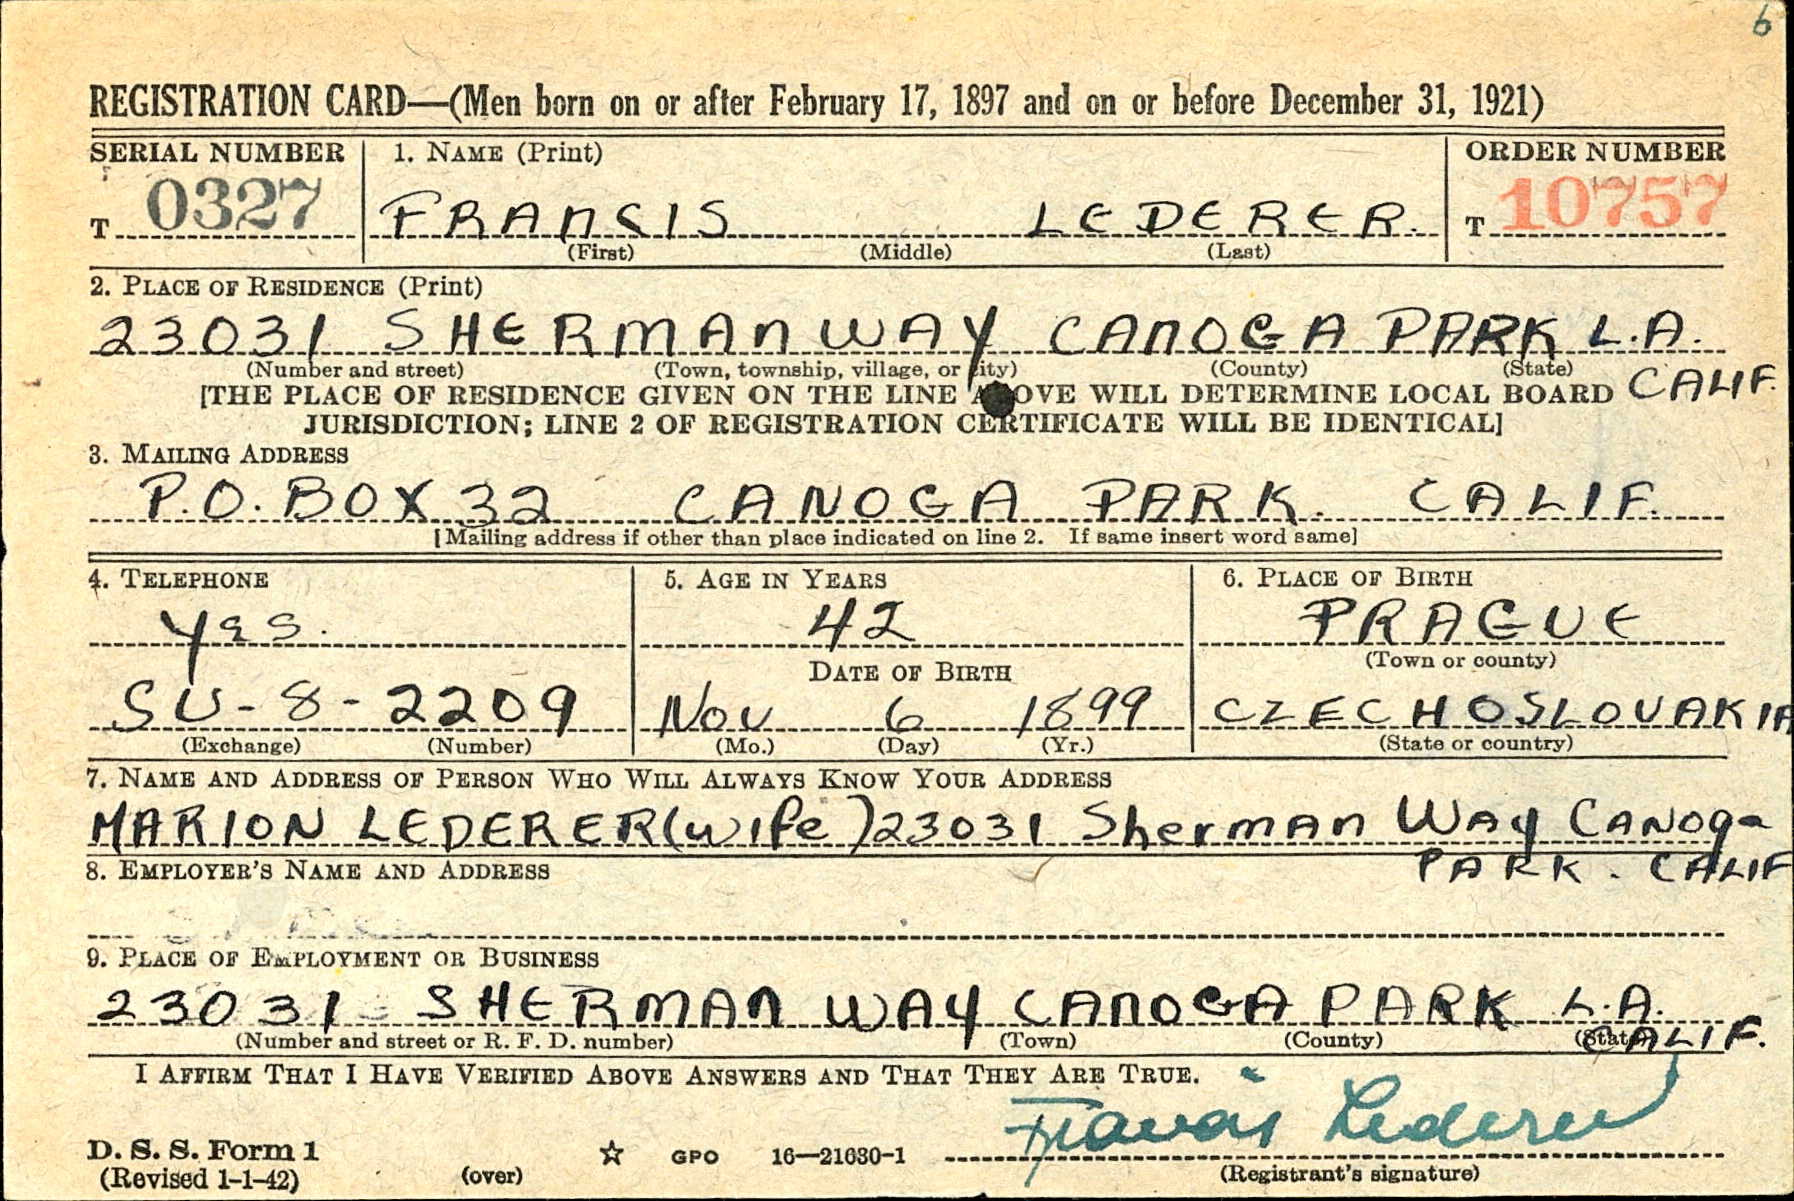 6
REGISTRATION CARD—(Men born on or after February 17, 1897 and on or before December 31, 1921)
SERIAL NUMBER 1. NAME (Print) ORDER NUMBER
T 0327 FRANCIS LEDERER. T 10757
(First) (Middle) (Last)
2. PLACE OF RESIDENCE (Print)
23031 SHERMAN WAY CANOGA PARK L.A.
(Number and street) (Town, township, village, or city) (County) (State)
CALIF.
[THE PLACE OF RESIDENCE GIVEN ON THE LINE ABOVE WILL DETERMINE LOCAL BOARD
JURISDICTION; LINE 2 OF REGISTRATION CERTIFICATE WILL BE IDENTICAL]
3. MAILING ADDRESS
P.O. BOX 32 CANOGA PARK. CALIF.
[Mailing address if other than place indicated on line 2. If same insert word same]
4. TELEPHONE 5. AGE IN YEARS 6. PLACE OF BIRTH
Yes. 42 PRAGUE
DATE OF BIRTH (Town or county)
SU-8-2209 Nov 6 1899 CZECHOSLOVAKIA
(Exchange) (Number) (Mo.) (Day) (Yr.) (State or country)
7. NAME AND ADDRESS OF PERSON WHO WILL ALWAYS KNOW YOUR ADDRESS
MARION LEDERER (wife) 23031 Sherman Way Canoga
PARK. CALIF
8. EMPLOYER'S NAME AND ADDRESS
9. PLACE OF EMPLOYMENT OR BUSINESS
23031 SHERMAN WAY CANOGA PARK L.A.
(Number and street or R. F. D. number) (Town) (County) (State)
CALIF.
I AFFIRM THAT I HAVE VERIFIED ABOVE ANSWERS AND THAT THEY ARE TRUE.
Francis Lederer
D. S. S. Form 1
(Revised 1-1-42) (over) ☆ GPO 16—21630-1 (Registrant's signature)